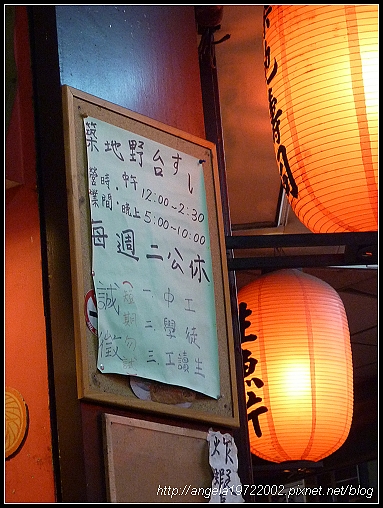 築地野台すし
營業時間：中午 12:00-2:30
晚上 5:00-10:00
每週二公休
誠徵
一、中工
二、學徒
三、工讀生
生魚片
炸蝦
http://angela19722002.pixnet.net/blog